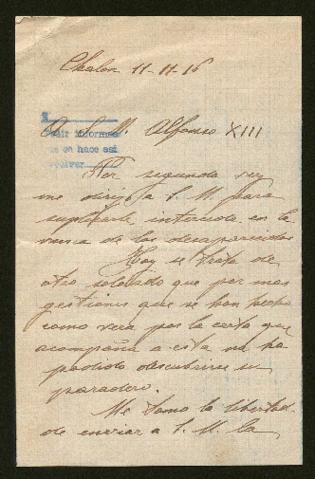 Chalon 11-11-16
A S. M. Alfonso XIII
Pedir informes
que se hace así
Por segunda vez
me dirijo a S. M. para
suplicarle interceda en la
busca de los desaparecidos
Hoy se trata de
otro soldado que por mas
gestiones que se han hecho
como verá por la carta que
acompaña a esta no ha
podido descubrirse su
paradero.
Me tomo la libertad
de enviar a S. M. la